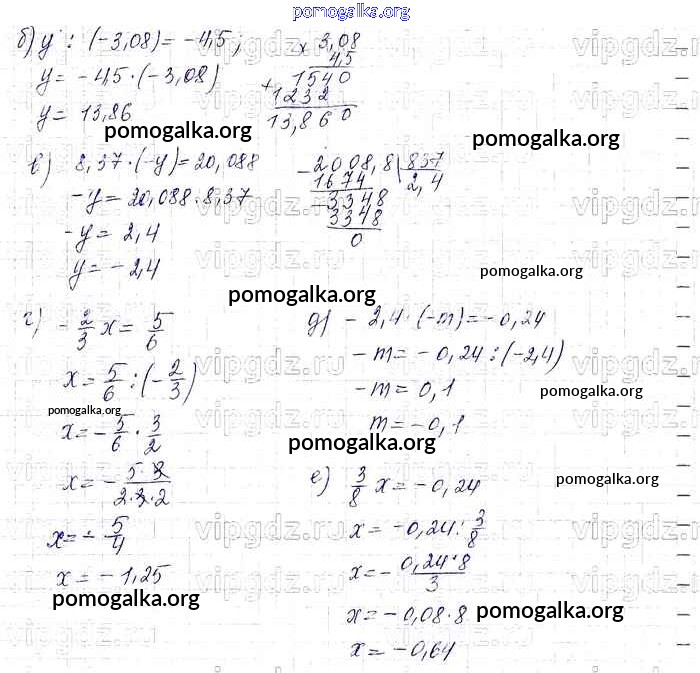 pomogalka.org
б) y : (-3,08) = -4,5;
y = -4,5 · (-3,08)
y = 13,86
× 3,08
4,5
+ 1540
1232
13,860
pomogalka.org
pomogalka.org
в) 8,37 · (-y) = 20,088
-y = 20,088 : 8,37
-y = 2,4
y = -2,4
- 2008,8 | 837
1674 2,4
- 3348
3348
0
pomogalka.org
pomogalka.org
г) - 2/3 x = 5/6
x = 5/6 : (- 2/3)
pomogalka.org
x = - 5/6 · 3/2
x = - 5·3/2·3·2
x = - 5/4
x = -1,25
pomogalka.org
д) -2,4 · (-m) = -0,24
-m = -0,24 : (-2,4)
-m = 0,1
m = -0,1
pomogalka.org
pomogalka.org
е) 3/8 x = -0,24
x = -0,24 : 3/8
x = - 0,24·8/3
x = -0,08 · 8
x = -0,64
pomogalka.org
pomogalka.org
vipgdz.ru
vipgdz.ru
vipgdz.ru
vipgdz.ru
vipgdz.ru
vipgdz.ru